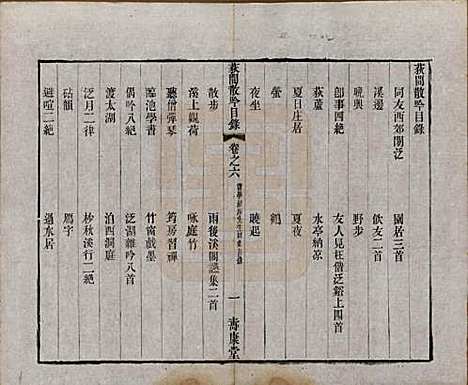 荻閒散吟目錄
同友西郊閒泛 園居三首
溪邊 飲友二首
曉興 野步
卽事四絶 友人見枉偕泛谿上四首
荻蘆 水亭納凉
夏日庄居 夏夜
螢 鶴
夜坐 曉起
荻閒散吟目錄 卷之六 一 壽康堂
散步 雨後溪閣讌集二首
溪上觀荷 咏庭竹
聽僧彈琴 筠房習禪
臨池學書 竹窗戲墨
偶吟八絶 泛湖雜吟八首
渡太湖 泊西洞庭
泛月二律 杪秋溪行二絶
砧韻 鴈字
避喧二絶 過水居